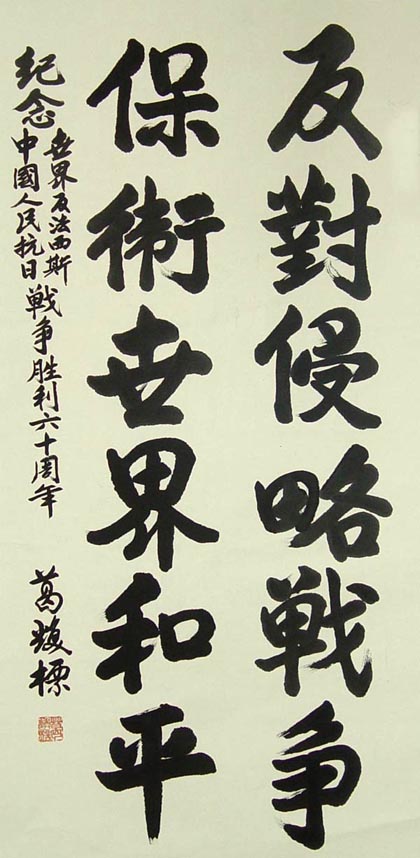 反對侵略戦争
保衛世界和平
纪念世界反法西斯
中國人民抗日戦争胜利六十周年
葛焌標